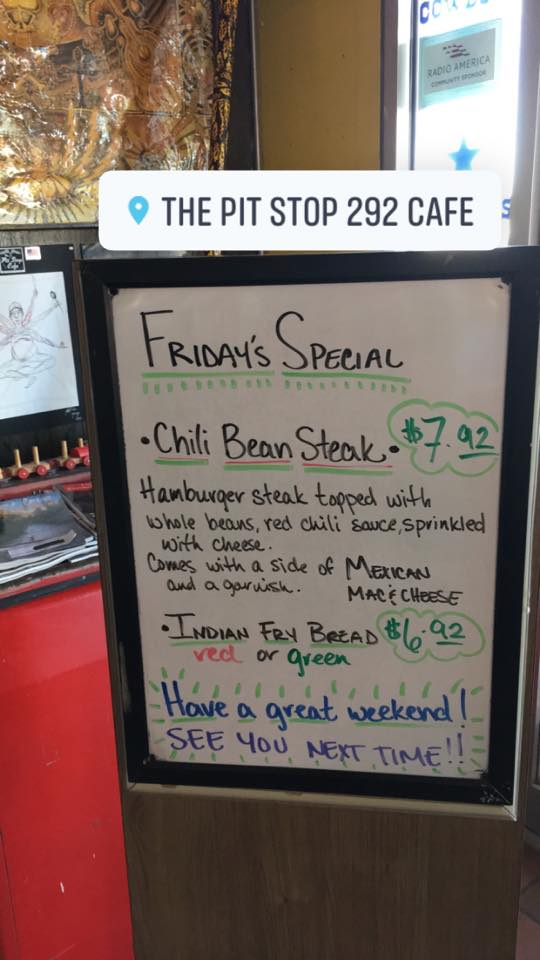 RADIO AMERICA
COMMUNITY SPONSOR
THE PIT STOP 292 CAFE
FRIDAY'S SPECIAL
•Chili Bean Steak• $7.92
Hamburger steak topped with
whole beans, red chili sauce, sprinkled
with cheese.
Comes with a side of MEXICAN
and a garnish. MAC & CHEESE
•INDIAN FRY BREAD $6.92
red or green
Have a great weekend!
SEE YOU NEXT TIME!!